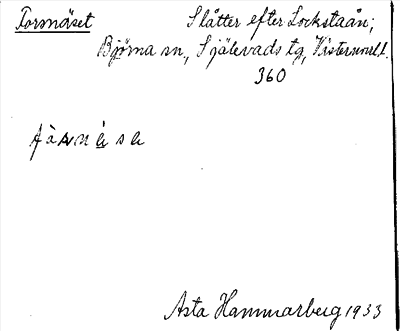 Tormöset Slåtter efter Lockstaån;
Björna sn, Själevads tg, Västernorrl.
360
Asta Hammarberg 1933